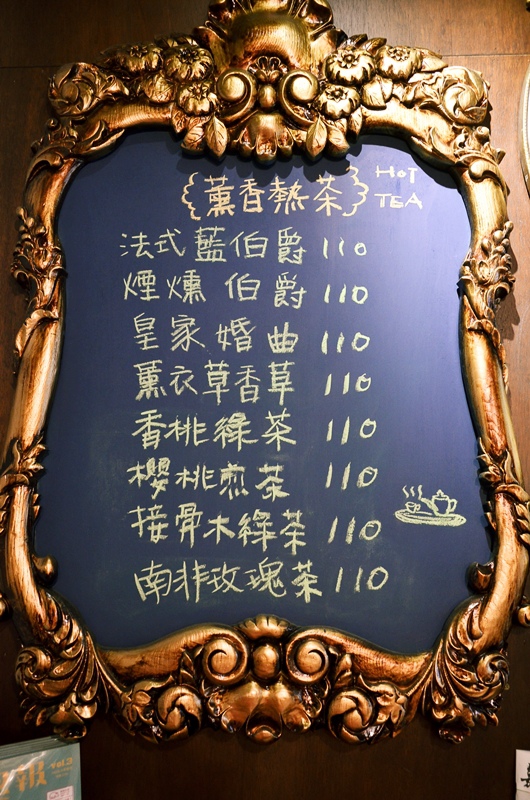 薰香熱茶 HOT TEA
法式藍伯爵 110
煙燻伯爵 110
皇家婚曲 110
薰衣草香草 110
香桃綠茶 110
櫻桃煎茶 110
接骨木綠茶 110
南非玫瑰茶 110
報 vol.3